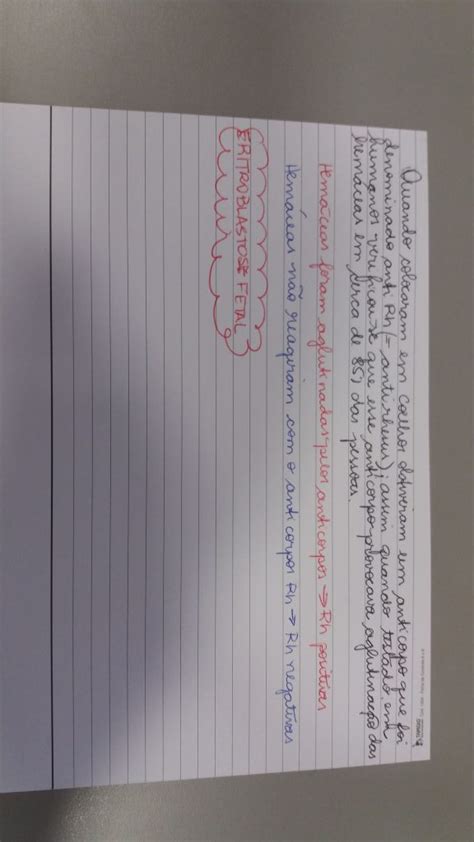 Quando colocaram em coelhos obtiveram um anticorpo que foi
denominado anti Rh (= anti rhesus); assim quando testado em
humanos verificou-se que esse anticorpo provocava aglutinação das
hemáceas em cerca de 85% das pessoas.
Hemáceas foram aglutinadas pelos anticorpos → Rh positivas
Hemáceas não reagiram com o anticorpos Rh → Rh negativas
ERITROBLASTOSE FETAL